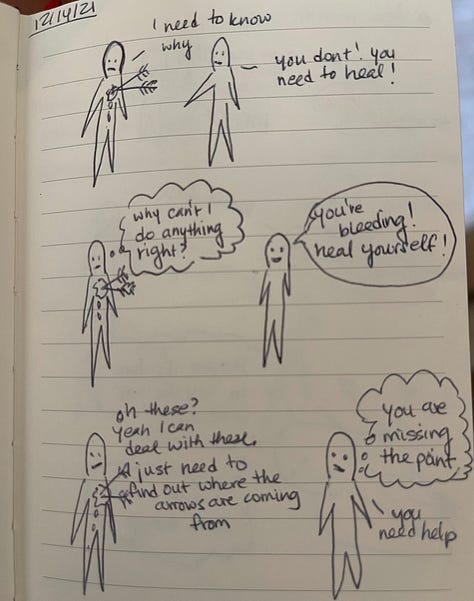 12/14/21
I need to know
why
you dont! you
need to heal!
why can't I
do anything
right?
you're
bleeding!
heal yourself!
oh these?
Yeah I can
deal with these.
I just need to
find out where the
arrows are coming
from
you are
missing
the point
you
need help